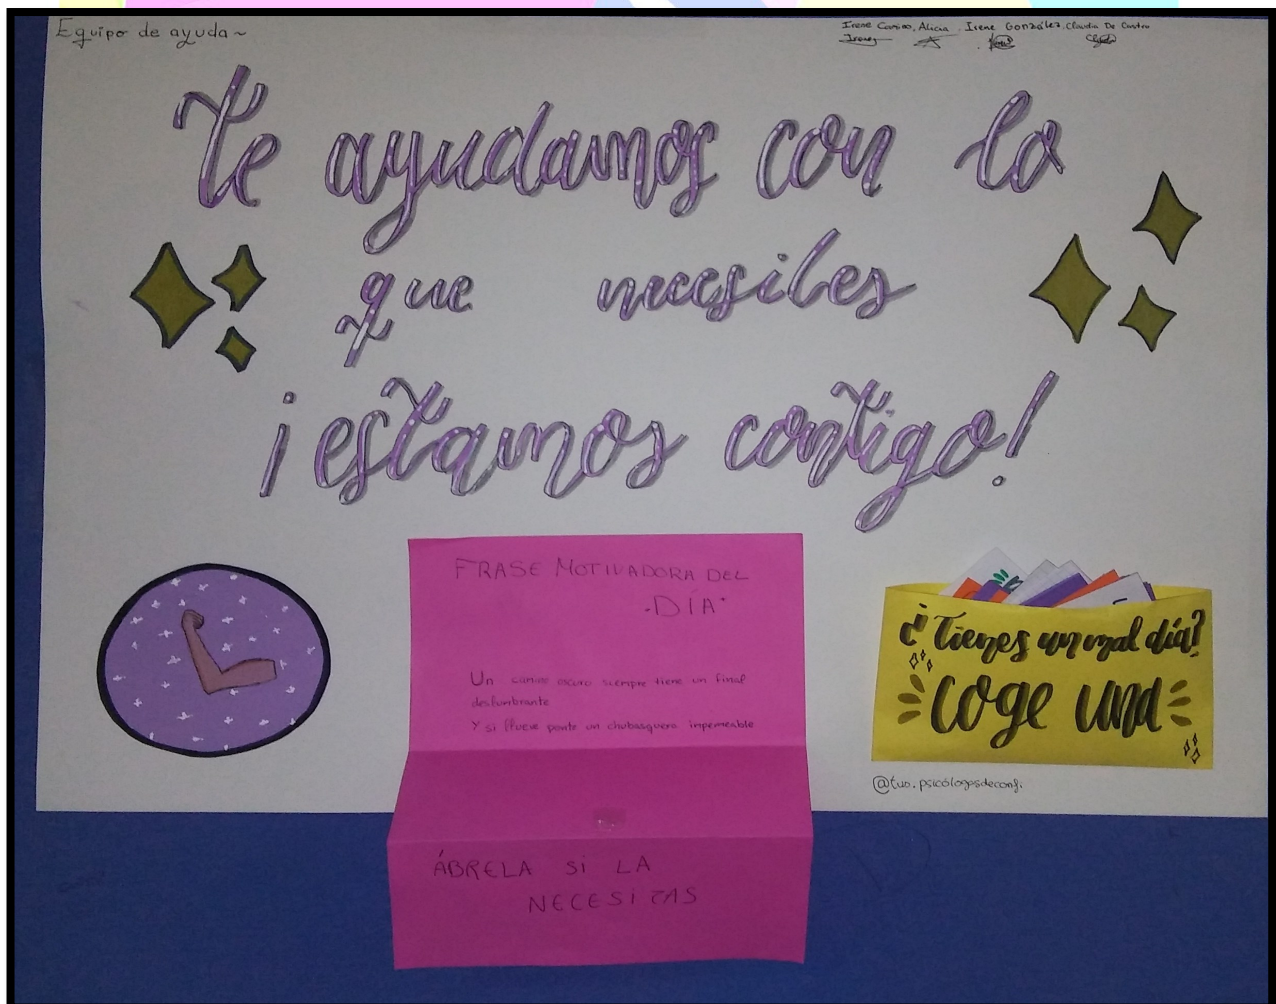 Equipo de ayuda~
Irene Casino, Alicia, Irene González, Claudia De Castro
Te ayudamos con lo
que necesites
¡estamos contigo!
FRASE MOTIVADORA DEL
·DÍA·
Un camino oscuro siempre tiene un final
deslumbrante
Y si llueve ponte un chubasquero impermeable
ÁBRELA SI LA
NECESITAS
¿Tienes un mal día?
COGE UNA
@tus.psicólogosdeconfi.